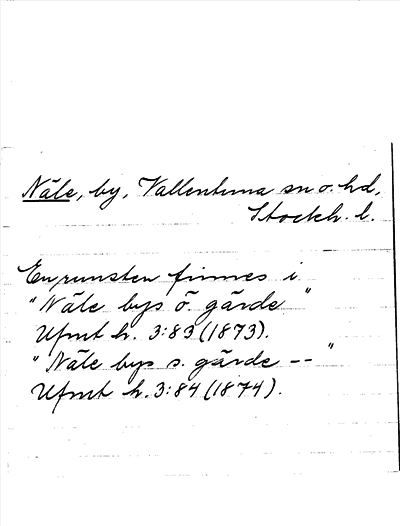 Näle, by, Vallentuna sn o. hd,
Stockh. l.
En runsten finnes i
"Näle bys ö. gärde"
Ufmt h. 3:83 (1873).
"Näle bys s. gärde -- "
Ufmt h. 3:84 (1874).